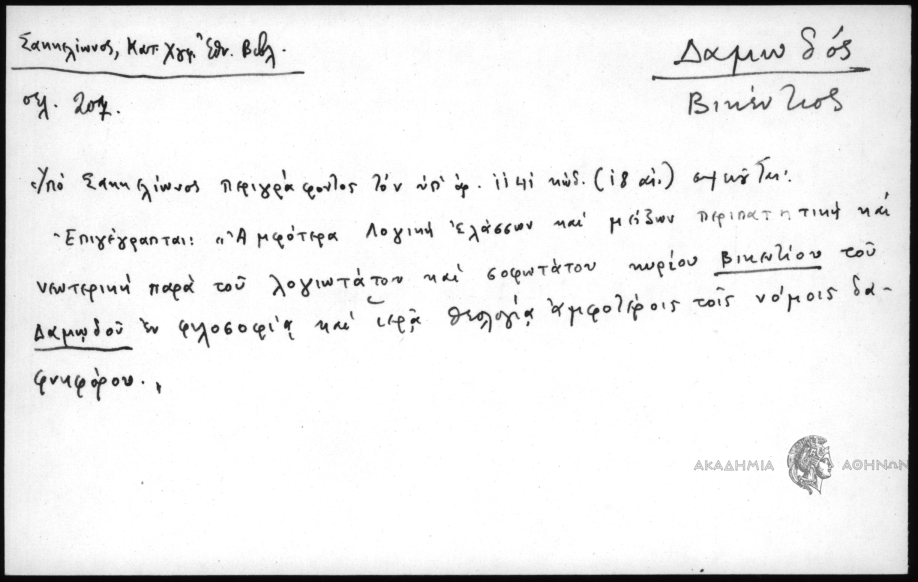 Σακκελίωνος, Κατ. Χγφ. Ἐθν. Βιβλ.
Δαμωδός
σελ. 207.
Βικέντιος
Ὑπό Σακκελίωνος περιγράφοντος τόν ὑπ' ἀρ. 1141 κώδ. (18 αἰ.) σημειοῦται:
Ἐπιγέγραπται: «Ἀμφότερα Λογική ἐλάσσων καί μείζων περιπατητική καί
νεωτερική παρά τοῦ λογιωτάτου καί σοφωτάτου κυρίου Βικεντίου τοῦ
Δαμῳδοῦ ἐν φιλοσοφίᾳ καί ἱερᾷ θεολογίᾳ ἀμφοτέροις τοῖς νόμοις δα-
φνηφόρου.»
ΑΚΑΔΗΜΙΑ ΑΘΗΝΩΝ